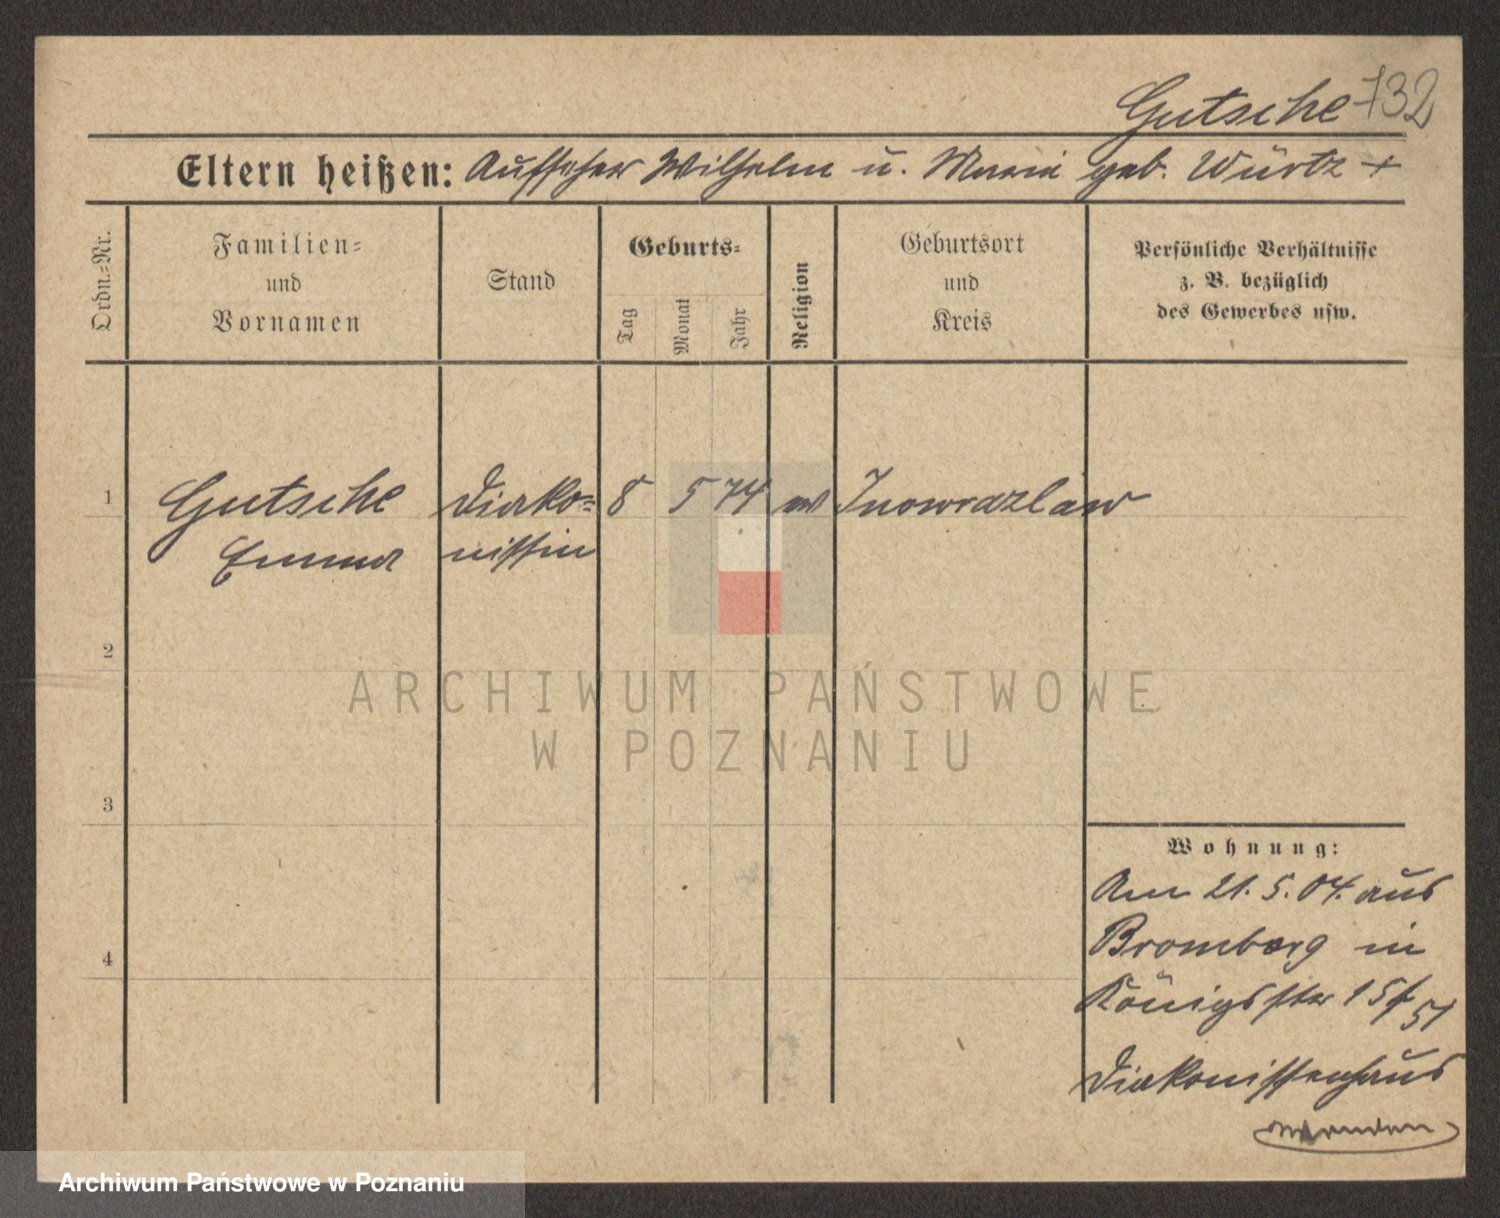 Gutsche 132
Eltern heißen: Aufseher Wilhelm u. Marie geb. Würtz +
Ordn.-Nr.
Familien- und Vornamen
Stand
Geburts-
Tag Monat Jahr
Religion
Geburtsort und Kreis
Persönliche Verhältnisse
z. B. bezüglich
des Gewerbes usw.
1 Gutsche Diako- 8 5 74 Inowrazlaw
Emma nissin
2
ARCHIWUM PAŃSTWOWE
W POZNANIU
3
Wohnung:
Am 21. 5. 04. aus
Bromberg in
Königsstr 15/
51
4
Diakonissenhaus
Archiwum Państwowe w Poznaniu